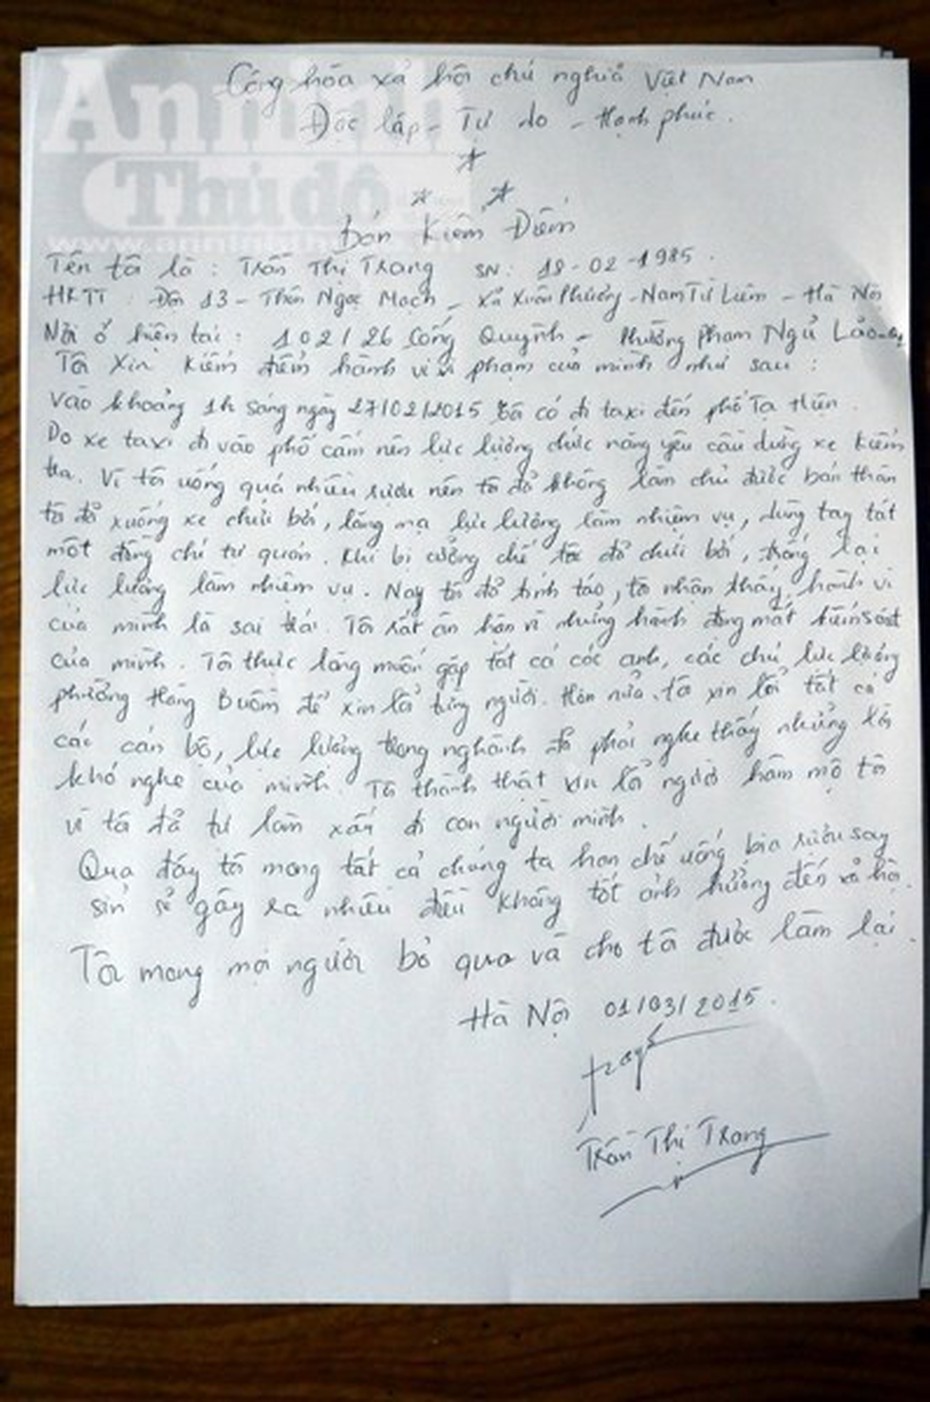 An ninh
Thủ đô
www.anninhthudo.vn
Cộng hòa xả hội chủ nghĩa Việt Nam
Độc lập - Tự do - Hạnh phúc.
Bản Kiểm Điểm
Tên tôi là : Trần Thị Trang SN: 18-02-1985.
HKTT : Đội 13 - Thôn Ngọc Mạch - xả Xuân Phương - Nam Từ Liêm - Hà Nội
Nơi ở hiện tại : 102/26 Cống Quỳnh - Phường Phạm Ngủ Lảo
Tôi xin kiểm điểm hành vi vi phạm của mình như sau :
Vào khoảng 1h sáng ngày 27/02/2015 tôi có đi taxi đến phố Tạ Hiện.
Do xe taxi đi vào phố cấm nên lực lượng chức năng yêu cầu dừng xe kiểm
tra. Vì tôi uống quá nhiều rượu nên tôi đả không làm chủ được bản thân
tôi đả xuống xe chửi bới, lăng mạ lực lượng làm nhiệm vụ, dùng tay tát
một đồng chí tự quản. Khi bị cưỡng chế tôi đả chửi bới, chống lại
lực lượng làm nhiệm vụ. Nay tôi đả tỉnh táo, tôi nhận thấy hành vi
của mình là sai trái. Tôi rất ân hận vì những hành động mất kiểm soát
của mình. Tôi thực lòng muốn gặp tất cả các anh, các chú lực lượng
phường Hàng Buồm để xin lổi từng người. Hơn nửa tôi xin lổi tất cả
các cán bộ, lực lượng trong nghành đả phải nghe thấy những lời
khó nghe của mình. Tôi thành thật xin lổi người hâm mộ tôi
vì tôi đả tự làm xấu đi con người mình.
Qua đây tôi mong tất cả chúng ta hạn chế uống bia rượu say
sỉn sẻ gây ra nhiều điều không tốt ảnh hưởng đến xả hội.
Tôi mong mọi người bỏ qua và cho tôi được làm lại.
Hà Nội 01/03/2015.
Trần Thị Trang